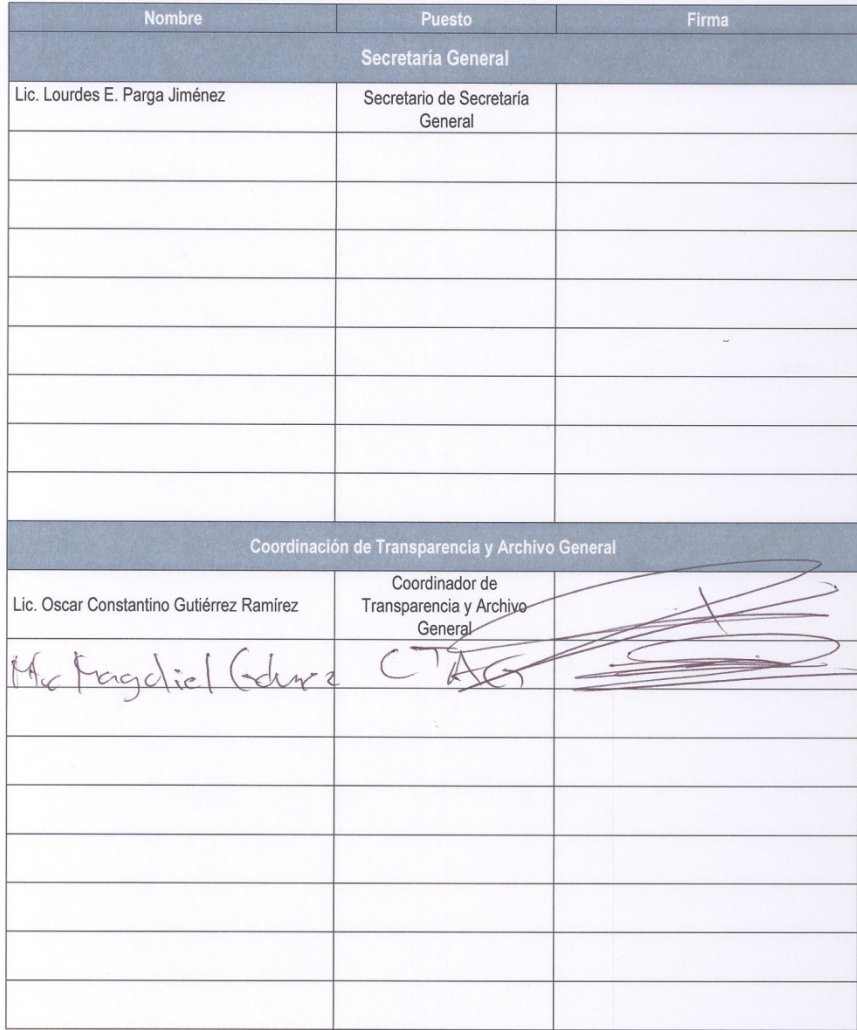 Nombre Puesto Firma
Secretaría General
Lic. Lourdes E. Parga Jiménez Secretario de Secretaría
General
Coordinación de Transparencia y Archivo General
Coordinador de
Lic. Oscar Constantino Gutiérrez Ramírez Transparencia y Archivo
General
Magdiel CTAG